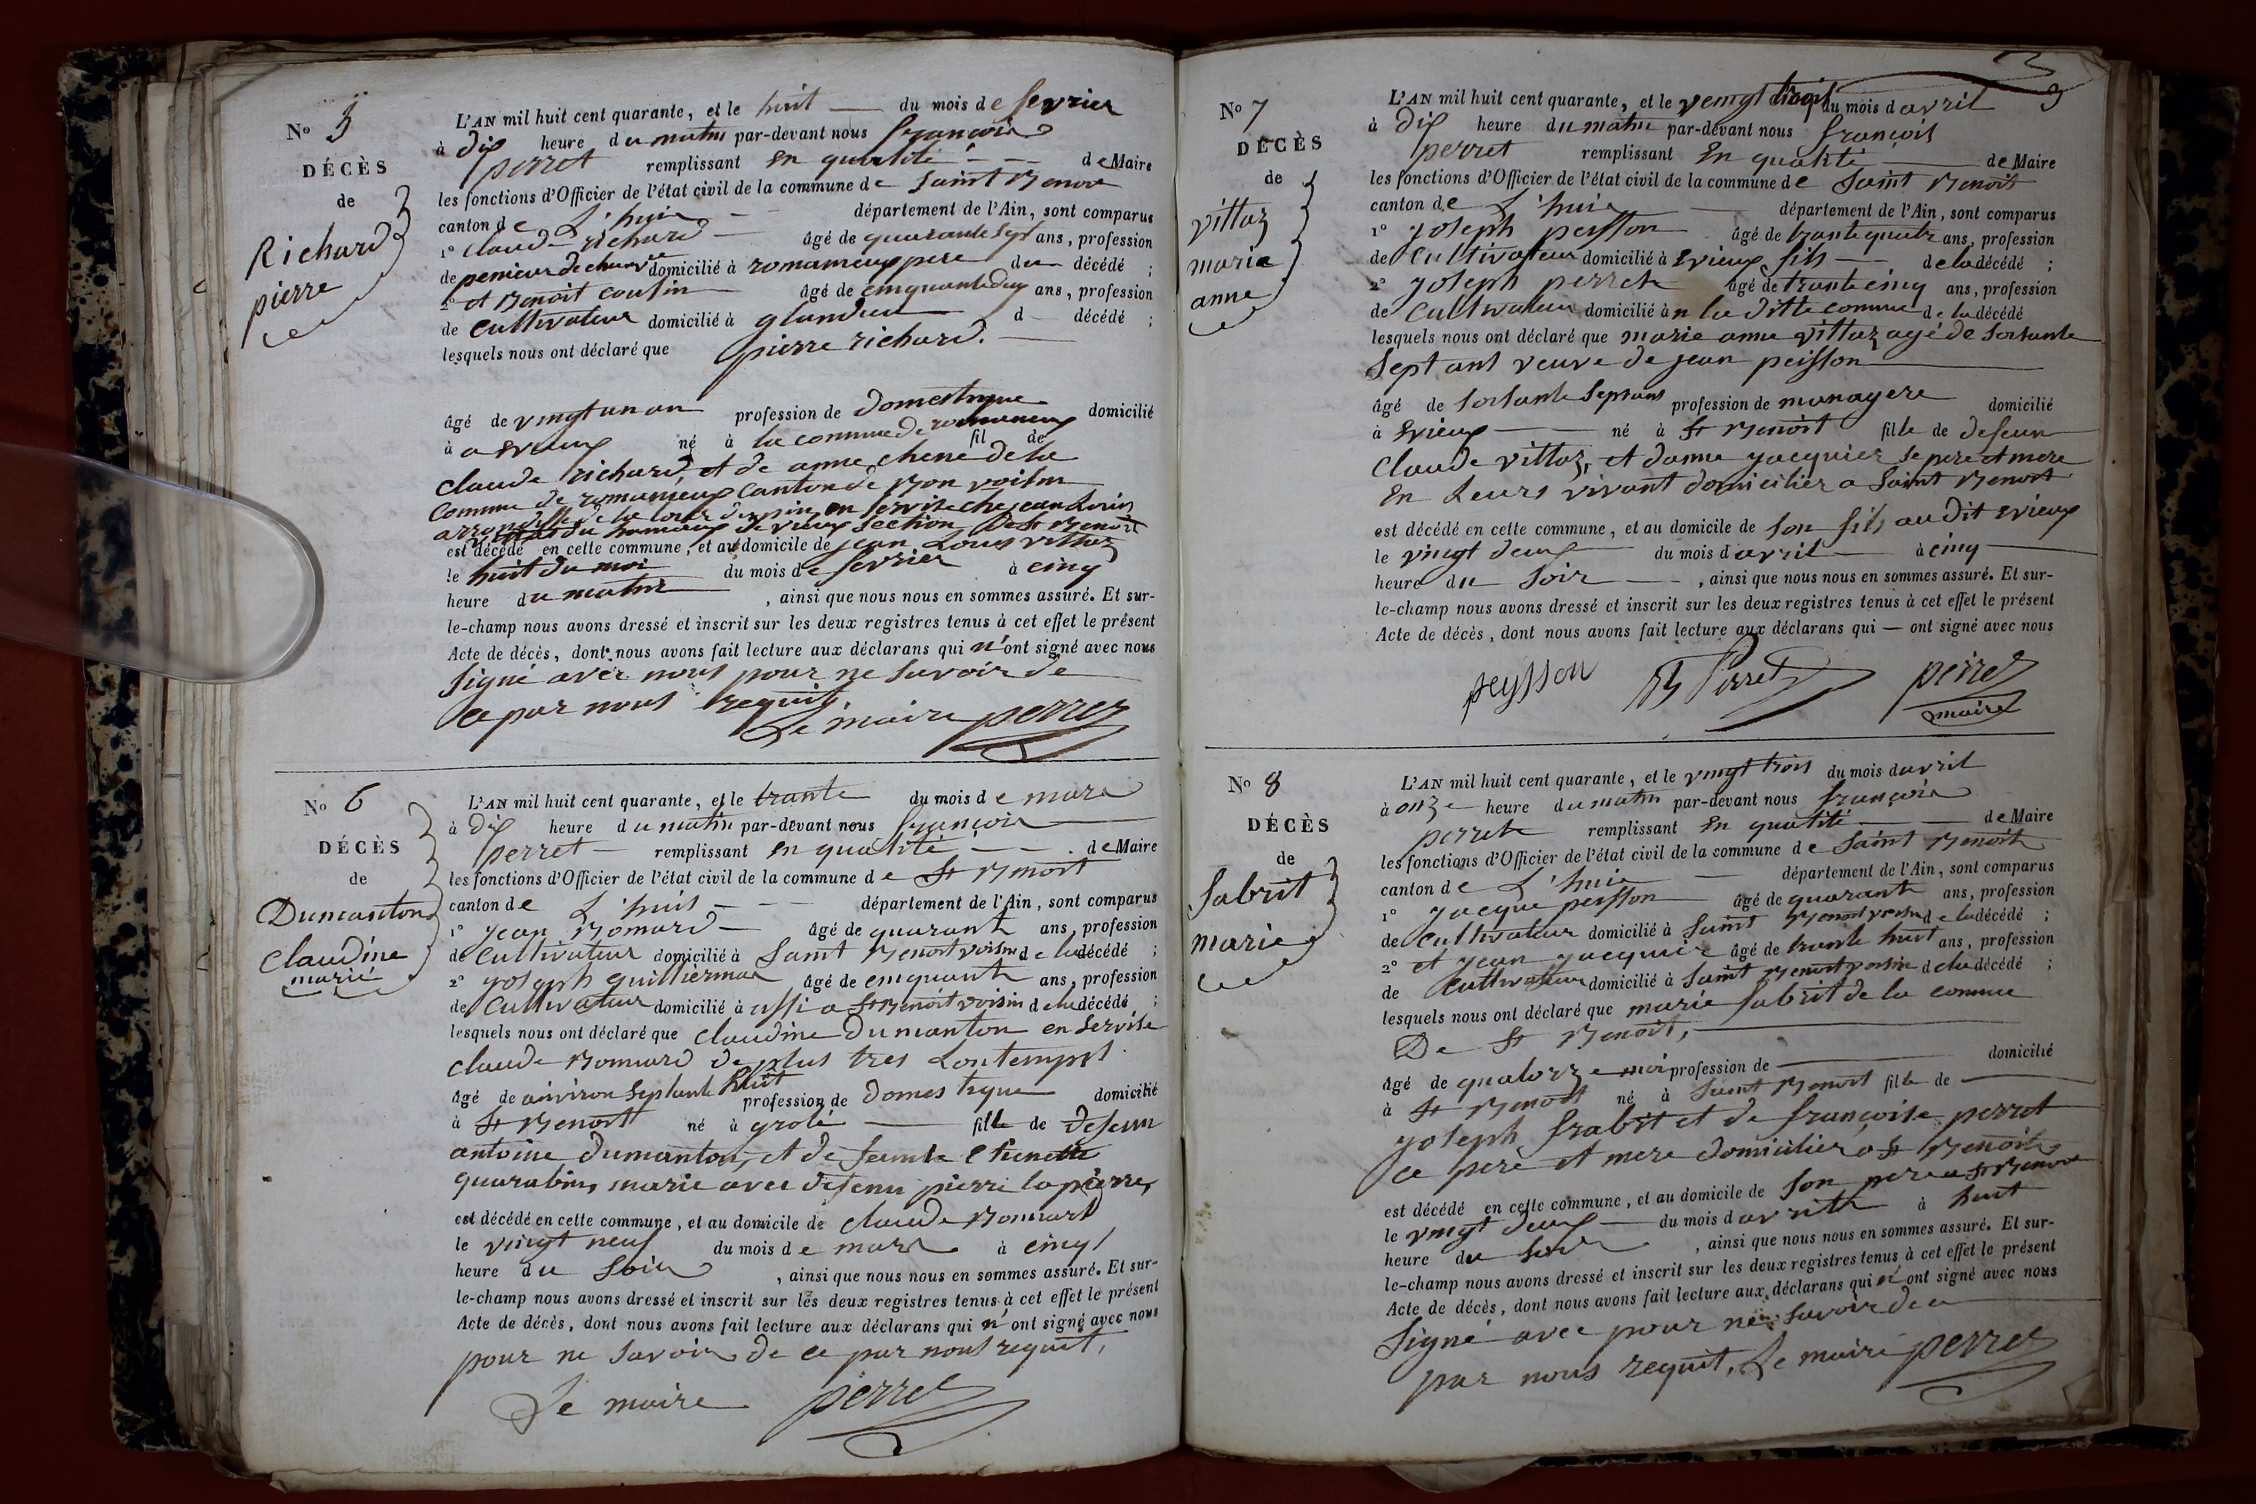 No 5
DÉCÈS
de
Richard
pierre
L'AN mil huit cent quarante, et le huit du mois de fevrier
à dix heure du matin par-devant nous françois
perret remplissant en qualité de Maire
les fonctions d'Officier de l'état civil de la commune de Saint Benoit
canton de L'huis département de l'Ain, sont comparus
1° claude richard âgé de quarante sept ans, profession
de penieur de chanvre domicilié à romanieux pere du décédé ;
2° et Benoit cousin âgé de cinquante deux ans, profession
de cultivateur domicilié à glandieu d décédé ;
lesquels nous ont déclaré que pierre richard.
âgé de vingt un an profession de domestique domicilié
à a Evieux né à la commune de romanieux fil de
claude richard et de anne chene de la
commune de romanieux canton de Bon voisin
arrondisse de la tour du pin, en servise che jean Louis
vittoz du hameaux de vieux section De St Benoit
est décédé en cette commune, et au domicile de jean Louis vittoz
le huit du moi du mois de fevrier à cinq
heure du matin , ainsi que nous nous en sommes assuré. Et sur-
le-champ nous avons dressé et inscrit sur les deux registres tenus à cet effet le présent
Acte de décès, dont nous avons fait lecture aux déclarans qui n'ont signé avec nous
signé avec nous pour ne savoir de
ce par nous requis
Le maire perret
No 6
DÉCÈS
de
Dumanton
Claudine
marie
L'AN mil huit cent quarante, et le trante du mois de mars
à dix heure du matin par-devant nous françois
perret remplissant en qualité de Maire
les fonctions d'Officier de l'état civil de la commune de St Benoit
canton de L'huis département de l'Ain, sont comparus
1° jean Bonnard âgé de quarante ans, profession
de Cultivateur domicilié à Saint Benoit voisin de la décédé ;
2° joseph guillierman âgé de cinquante ans, profession
de Cultivateur domicilié à ussi a St Benoit voisin de la décédé ;
lesquels nous ont déclaré que claudine Dumanton en servise
claude Bonnard de plus tres Lontemps
âgé de ainviron septante huit profession de domestique domicilié
à St Benoit né à grolé fille de defeun
antoine dumanton, et de feunte Etienette
quarabin, marie avec defenu pierre lapierre,
est décédé en cette commune, et au domicile de claude Bonnard
le vingt neuf du mois de mars à cinq
heure du Soir , ainsi que nous nous en sommes assuré. Et sur-
le-champ nous avons dressé et inscrit sur les deux registres tenus à cet effet le présent
Acte de décès, dont nous avons fait lecture aux déclarans qui n'ont signé avec nous
pour ne savoir de ce par nous requit,
Le maire perret
3
No 7
DÉCÈS
de
vittoz
marie
anne
L'AN mil huit cent quarante, et le vengt trois du mois d avril
à dix heure du matin par-devant nous françois
perret remplissant En qualité de Maire
les fonctions d'Officier de l'état civil de la commune de Saint Benoit
canton de L'huis département de l'Ain, sont comparus
1° joseph peisson âgé de trante quatre ans, profession
de Cultivateur domicilié à Evieux fils de la décédé ;
2° joseph perret âgé de trante cinq ans, profession
de Cultivateur domicilié à n la ditte commune de la décédé
lesquels nous ont déclaré que marie anne vittoz agé de soisante
sept ans veuve de jean peisson
âgé de soisante sept ans profession de manayere domicilié
à Evieux né à St Benoit fille de defeun
Claude vittoz, et danne jacquier se pere et mere
En Leurs vivant domicilier a Saint Benoit
est décédé en cette commune, et au domicile de son fils au dit Evieux
le vingt deux du mois d avril à cinq
heure du Soir , ainsi que nous nous en sommes assuré. Et sur-
le-champ nous avons dressé et inscrit sur les deux registres tenus à cet effet le présent
Acte de décès, dont nous avons fait lecture aux déclarans qui — ont signé avec nous
peysson Perret perret
maire
No 8
DÉCÈS
de
fabrit
marie
L'AN mil huit cent quarante, et le vingt trois du mois d avril
à onze heure du matin par-devant nous françois
perret remplissant En qualité de Maire
les fonctions d'Officier de l'état civil de la commune de Saint Benoit
canton de L'huis département de l'Ain, sont comparus
1° jacque peisson âgé de quarant ans, profession
de Cultivateur domicilié à Saint Benoit voisin de la décédé ;
2° et jean jacquier âgé de trante huit ans, profession
de Cultivateur domicilié à Saint Benoit voisin de la décédé ;
lesquels nous ont déclaré que marie fabrit de la commue
De St Benoit,
âgé de quatorze moi profession de domicilié
à St Benoit né à Saint Benoit fille de
joseph frabit et de françoise perret
ce pere et mere domicilier a St Benoit
est décédé en cette commune, et au domicile de son pere a St Benoit
le vingt deux du mois d avrille à huit
heure du soir , ainsi que nous nous en sommes assuré. Et sur-
le-champ nous avons dressé et inscrit sur les deux registres tenus à cet effet le présent
Acte de décès, dont nous avons fait lecture aux déclarans qui n'ont signé avec nous
signé avec pour ne savoir de ce
par nous requit, Le maire perret